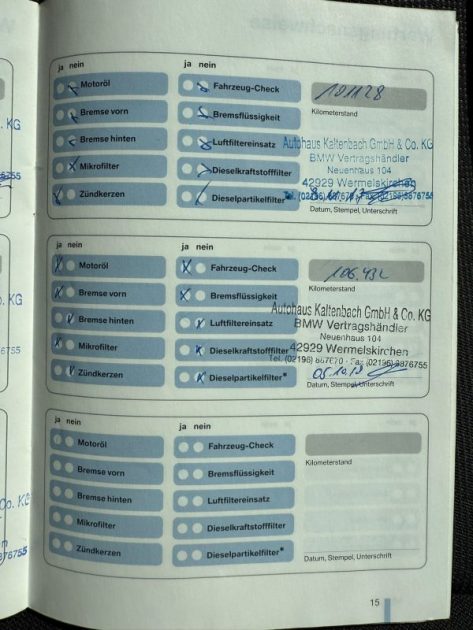 ja nein
ja nein
Motoröl
Fahrzeug-Check
Bremse vorn
Bremsflüssigkeit
Kilometerstand
Bremse hinten
Luftfiltereinsatz
Autohaus Kaltenbach GmbH & Co. KG
BMW Vertragshändler
Mikrofilter
Dieselkraftstofffilter
Neuenhaus 104
42929 Wermelskirchen
Zündkerzen
Dieselpartikelfilter*
Datum, Stempel, Unterschrift
ja nein
ja nein
Motoröl
Fahrzeug-Check
106.432
Bremse vorn
Bremsflüssigkeit
Kilometerstand
Bremse hinten
Luftfiltereinsatz
Autohaus Kaltenbach GmbH & Co. KG
BMW Vertragshändler
Neuenhaus 104
Mikrofilter
Dieselkraftstofffilter
42929 Wermelskirchen
Zündkerzen
Dieselpartikelfilter*
Datum, Stempel, Unterschrift
ja nein
ja nein
Motoröl
Fahrzeug-Check
Bremse vorn
Bremsflüssigkeit
Kilometerstand
Bremse hinten
Luftfiltereinsatz
Mikrofilter
Dieselkraftstofffilter
Zündkerzen
Dieselpartikelfilter*
Datum, Stempel, Unterschrift
15